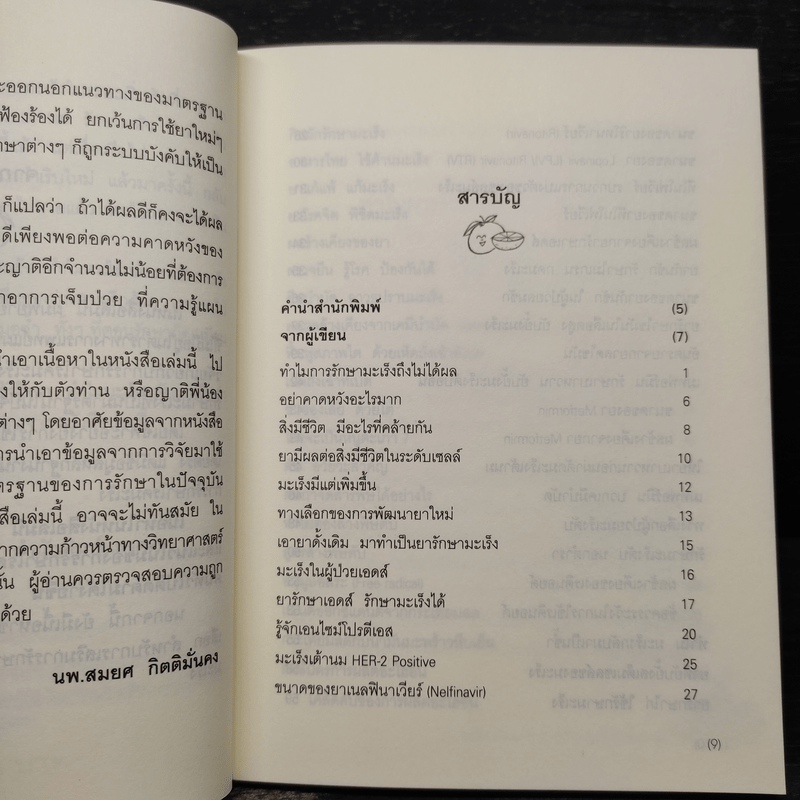 ะออกนอกแนวทางของมาตรฐาน
ฟ้องร้องได้ ยกเว้นการใช้ยาใหม่ๆ
ษาต่างๆ ก็ถูกระบบบังคับให้เป็น
ก็แปลว่า ถ้าได้ผลดีก็คงจะได้ผล
ดีเพียงพอต่อความคาดหวังของ
ะญาติอีกจำนวนไม่น้อยที่ต้องการ
าอาการเจ็บป่วย ที่ความรู้แผน
นำเอาเนื้อหาในหนังสือเล่มนี้ ไป
งให้กับตัวท่าน หรือญาติพี่น้อง
ต่างๆ โดยอาศัยข้อมูลจากหนังสือ
ารนำเอาข้อมูลจากการวิจัยมาใช้
ตรฐานของการรักษาในปัจจุบัน
สือเล่มนี้ อาจจะไม่ทันสมัย ใน
ากความก้าวหน้าทางวิทยาศาสตร์
ั้น ผู้อ่านควรตรวจสอบความถูก
ด้วย
นพ.สมยศ กิตติมั่นคง
สารบัญ
คำนำสำนักพิมพ์ (5)
จากผู้เขียน (7)
ทำไมการรักษามะเร็งถึงไม่ได้ผล 1
อย่าคาดหวังอะไรมาก 6
สิ่งมีชีวิต มีอะไรที่คล้ายกัน 8
ยามีผลต่อสิ่งมีชีวิตในระดับเซลล์ 10
มะเร็งมีแต่เพิ่มขึ้น 12
ทางเลือกของการพัฒนายาใหม่ 13
เอายาดั้งเดิม มาทำเป็นยารักษามะเร็ง 15
มะเร็งในผู้ป่วยเอดส์ 16
ยารักษาเอดส์ รักษามะเร็งได้ 17
รู้จักเอนไซม์โปรตีเอส 20
มะเร็งเต้านม HER-2 Positive 25
ขนาดของยาเนลฟินาเวียร์ (Nelfinavir) 27
(9)